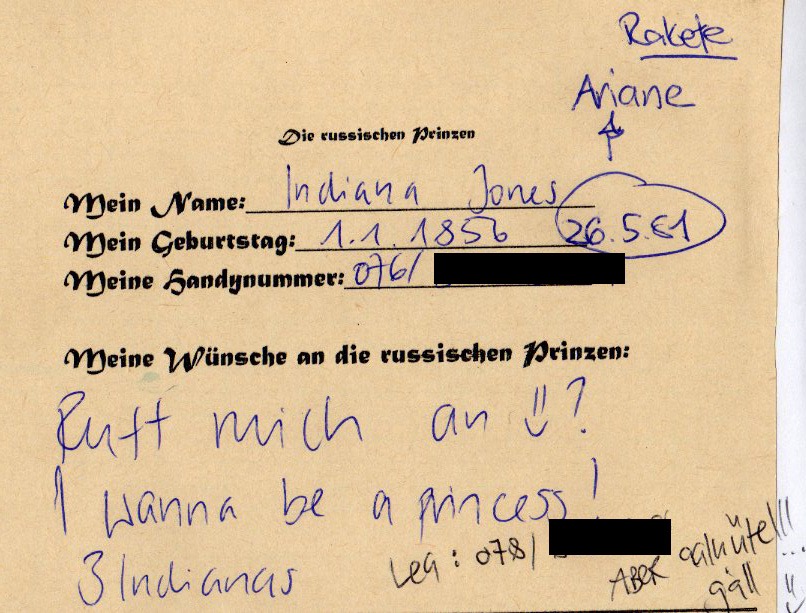 Rakete
Ariane
Die russischen Prinzen
Mein Name: Indiana Jones
Mein Geburtstag: 1.1.1856 26.5.61
Meine Handynummer: 076/
Meine Wünsche an die russischen Prinzen:
Ruft mich an !! ?
I wanna be a princess!
3 Indianas
Lea: 078/
ABER aalüüte!!!
gäll